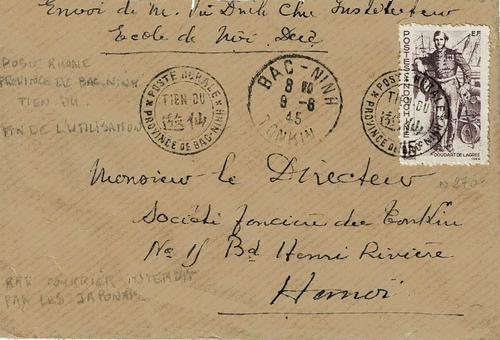 Envoi de M. Vũ Đình Chu Instituteur
Ecole de Nội Duệ
POSTE RURALE
PROVINCE DE BAC-NINH
TIEN DU
FIN DE L'UTILISATION
POSTE RURALE
TIEN DU
遊仙
PROVINCE DE BAC-NINH
BAC-NINH
9-6
45
TONKIN
POSTE RURALE
TIEN DU
PROVINCE DE BAC-NINH
POSTES INDOCHINE
DOUDART DE LAGRÉE
Monsieur le Directeur
Société foncière du Tonkin
No 15 Bd Henri Rivière
Hanoi
PAR LES JAPONAIS